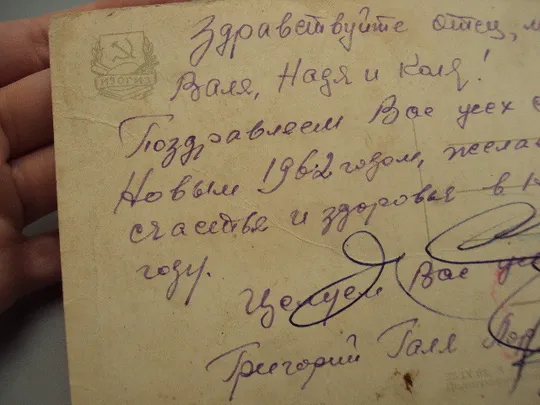 ИЗОГИЗ
Здравствуйте отец, м
Валя, Надя и Коля!
Поздравляем Вас усех с
Новым 1962 годом, желаем
счастья и здоровья в
году.
Целуем Вас
Григорий Галя